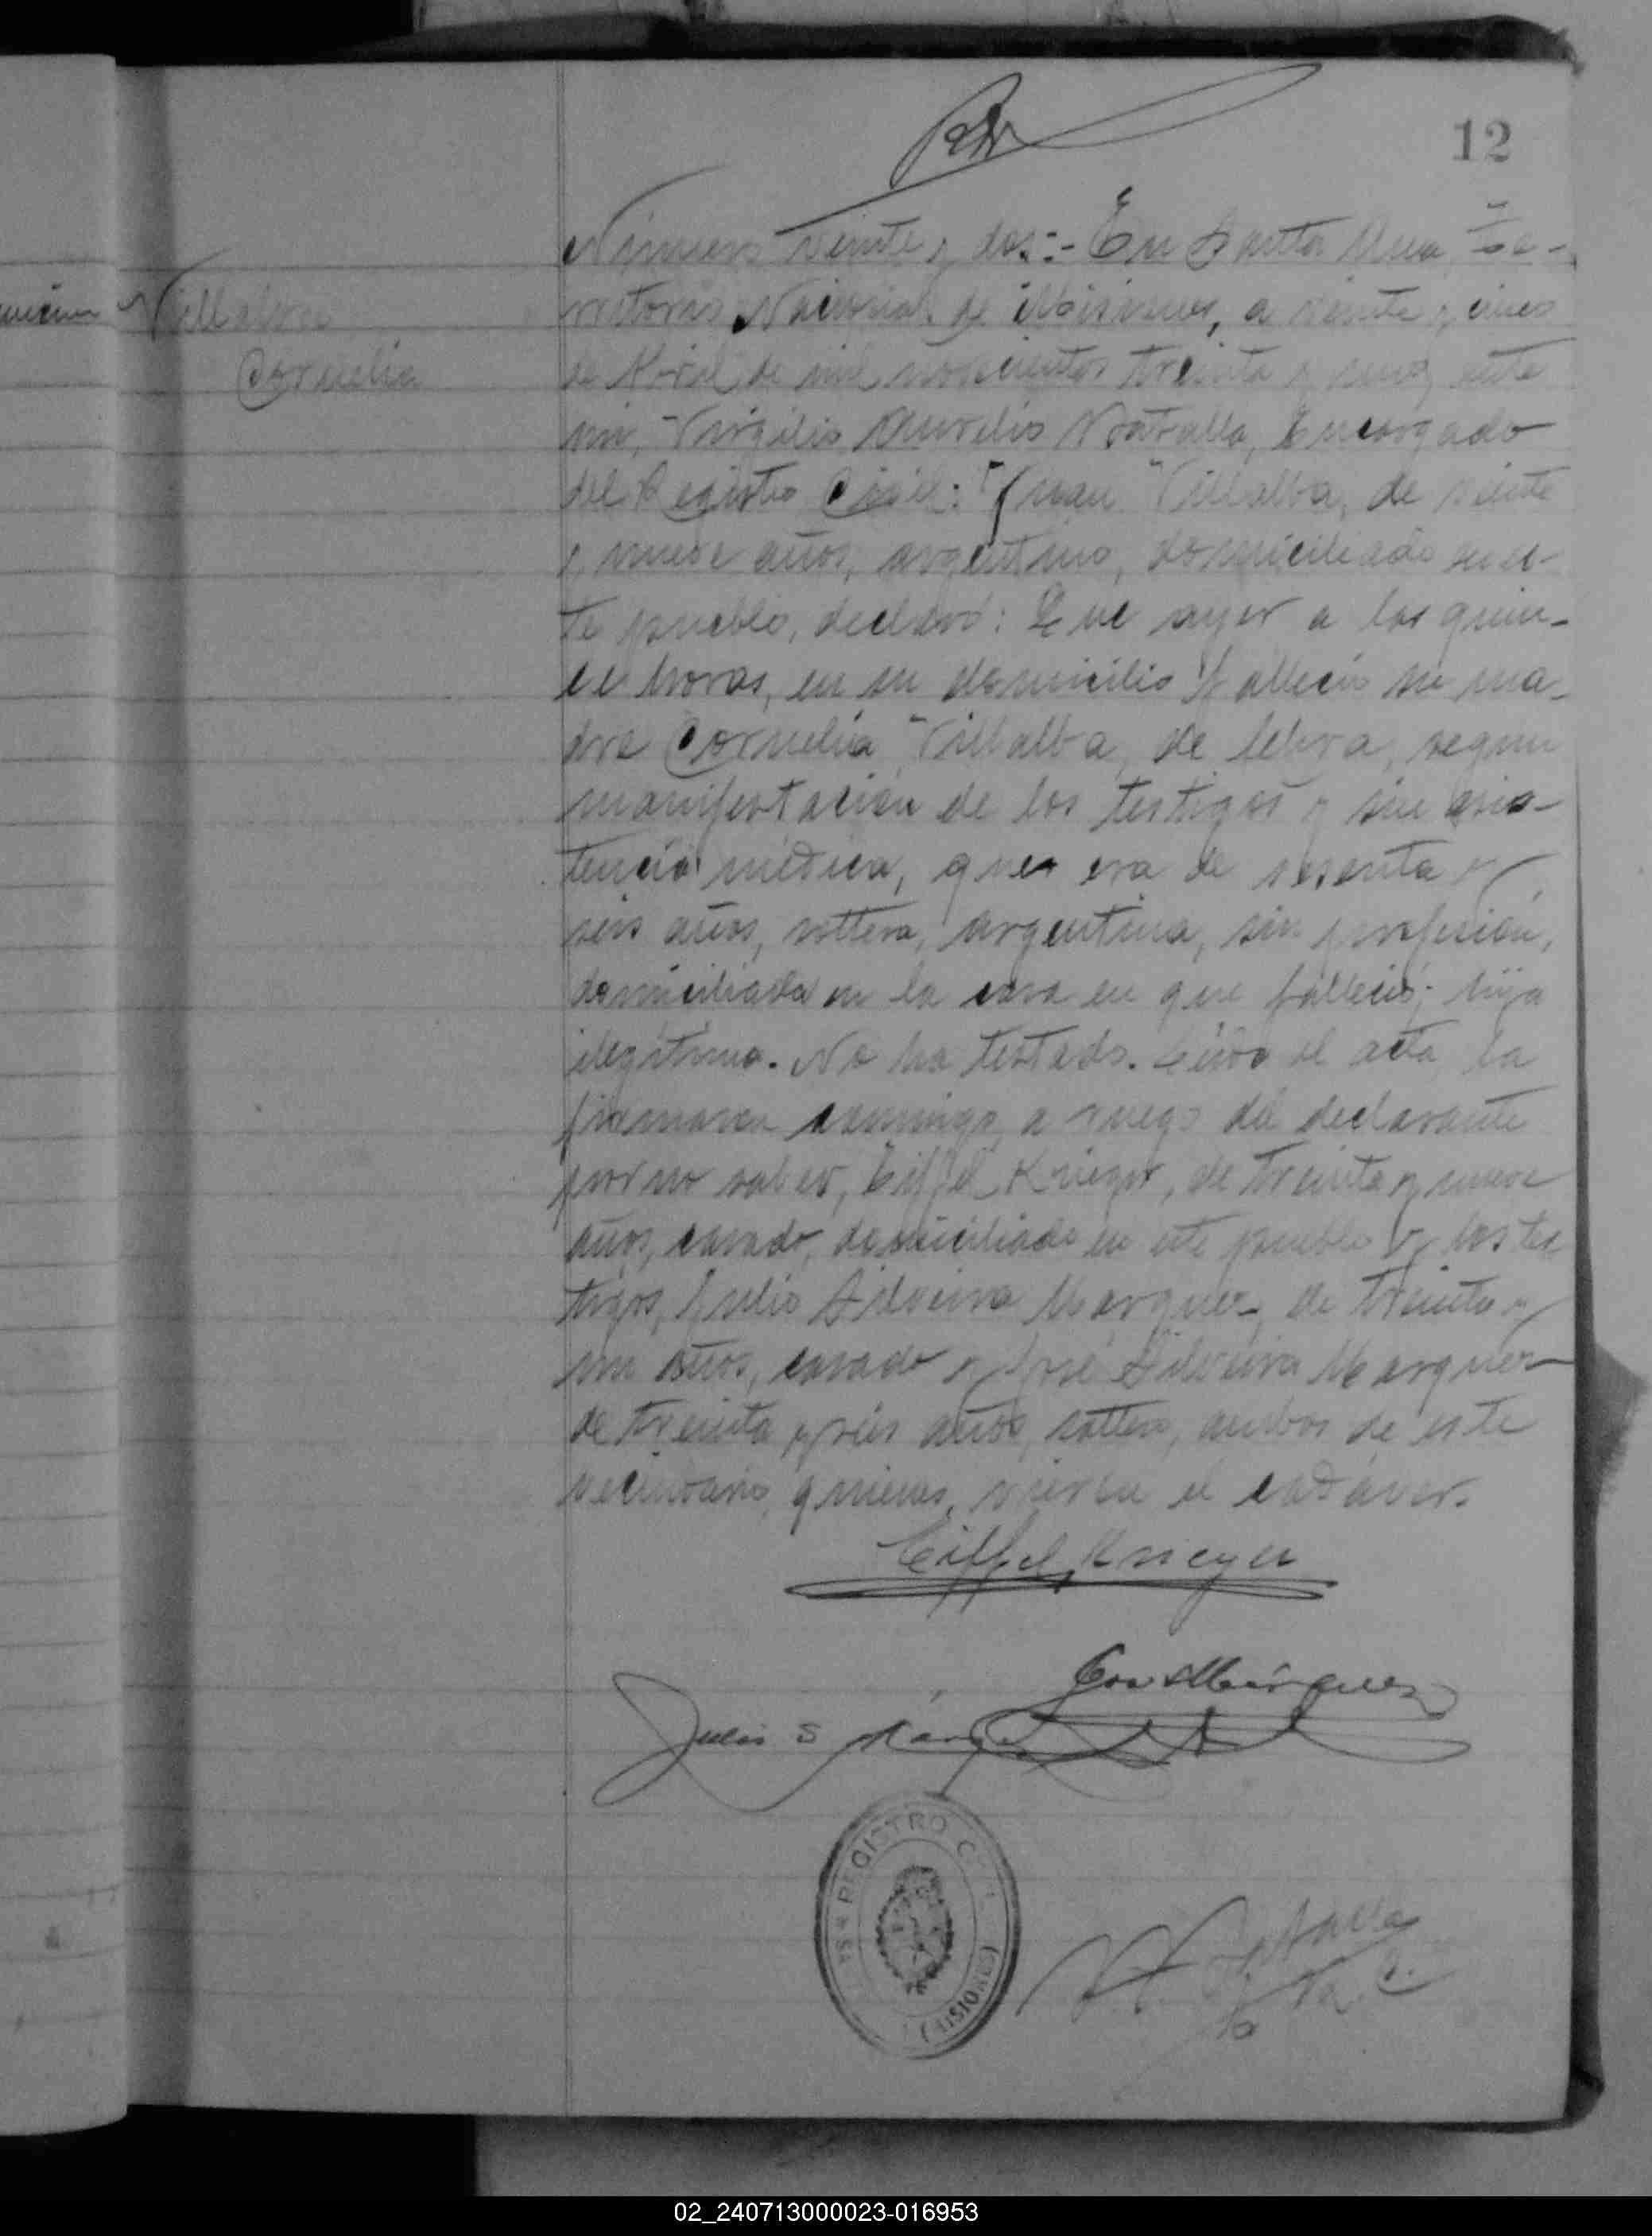 12
Villalba
Cornelia
Número veinte y dos:- En Santa Ana, Te-
rritorio Nacional de Misiones, a veinte y cinco
de Abril de mil novecientos treinta y uno, ante
mi, Virgilio Aurelio Encargado
del Registro Civil: Juan Villalba, de veinte
y nueve años, argentino, domiciliado en es-
te pueblo, declaró: Que ayer a las quin-
ce horas, en su domicilio falleció su ma-
dre Cornelia Villalba, de lepra, segun
manifestación de los testigos y sin asis-
tencia médica, que era de sesenta y
seis años, soltera, argentina, sin profesión,
domiciliada en la casa en que falleció; hija
ilegítima. No ha testado. Leida el acta, la
firmaron conmigo, a ruego del declarante
por no saber, Eiffel Krieger, de treinta y nueve
años, casado, domiciliado en este pueblo y los tes
tigos, Julio Silveira Marquez, de treinta y
un años, casado y José Silveira Marquez
de treinta y seis años, soltero, ambos de este
vecindario, quienes vieron el cadáver.
Eiffel Krieger
José Márquez
Julio S Márquez
REGISTRO CIVIL
(MISIONES)
02_240713000023-016953